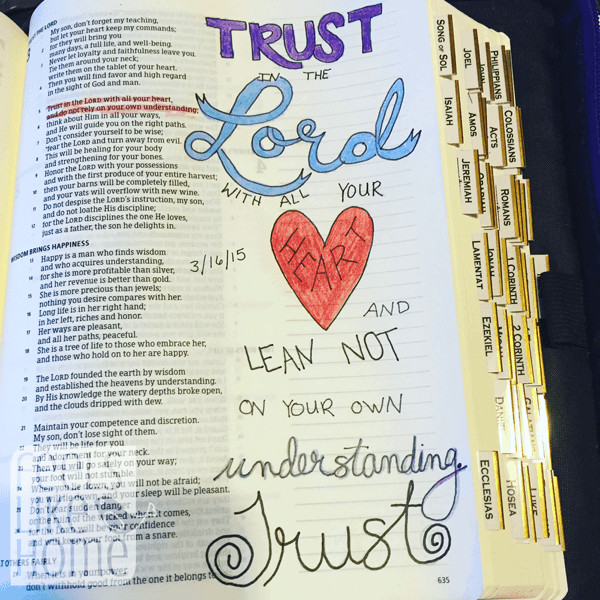 THE LORD
My son, don't forget my teaching,
but let your heart keep my commands;
2 for they will bring you
many days, a full life, and well-being.
3 Never let loyalty and faithfulness leave you.
Tie them around your neck;
write them on the tablet of your heart.
4 Then you will find favor and high regard
in the sight of God and man.
5 Trust in the LORD with all your heart,
and do not rely on your own understanding;
6 think about Him in all your ways,
and He will guide you on the right paths.
7 Don't consider yourself to be wise;
fear the LORD and turn away from evil.
8 This will be healing for your body
and strengthening for your bones.
9 Honor the LORD with your possessions
and with the first produce of your entire harvest;
10 then your barns will be completely filled,
and your vats will overflow with new wine.
11 Do not despise the LORD's instruction, my son,
and do not loathe His discipline;
12 for the LORD disciplines the one He loves,
just as a father, the son he delights in.
WISDOM BRINGS HAPPINESS
13 Happy is a man who finds wisdom
and who acquires understanding,
14 for she is more profitable than silver,
and her revenue is better than gold.
15 She is more precious than jewels;
nothing you desire compares with her.
16 Long life is in her right hand;
in her left, riches and honor.
17 Her ways are pleasant,
and all her paths, peaceful.
18 She is a tree of life to those who embrace her,
and those who hold on to her are happy.
19 The LORD founded the earth by wisdom
and established the heavens by understanding.
20 By His knowledge the watery depths broke open,
and the clouds dripped with dew.
21 Maintain your competence and discretion.
My son, don't lose sight of them.
22 They will be life for you
and adornment for your neck.
23 Then you will go safely on your way;
your foot will not stumble.
24 When you lie down, you will not be afraid;
you will lie down, and your sleep will be pleasant.
25 Don't fear sudden danger
or the ruin of the wicked when it comes,
26 for the LORD will be your confidence
and will keep your foot from a snare.
OTHERS FAIRLY
27 When it is in your power,
don't withhold good from the one it belongs to
TRUST
IN THE
Lord
WITH ALL YOUR
HEART
3/16/15
AND
LEAN NOT
ON YOUR OWN
understanding.
Trust
635
Home
SONG OF SOL
ISAIAH
JEREMIAH
LAMENTAT
EZEKIEL
DANIE
ECCLESIAS
JOEL
AMOS
JONAH
HOSEA
PHILIPPIANS
JOHN
COLOSSIANS
ACTS
ROMANS
1 CORINTH
2 CORINTH
LUKE